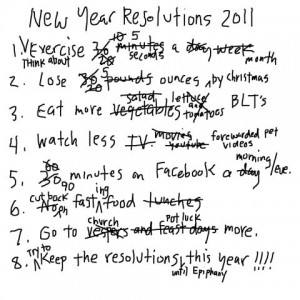 New Year Resolutions 2011
10 5
1. Exercise 30 minutes a day week
Think about seconds month
2. Lose 30 20 5 pounds ounces by christmas
salad lettuce and
3. Eat more vegetables tomatoes BLT's
movies forewarded pet
4. Watch less T.V. youtube videos
60 morning
5. 30 90 minutes on Facebook a day/eve.
cut back ing
6. No fast food lunches
on
church potluck
7. Go to vespers and feast days more.
Try to
8. Keep the resolutions, this year !!!!
until Epiphany